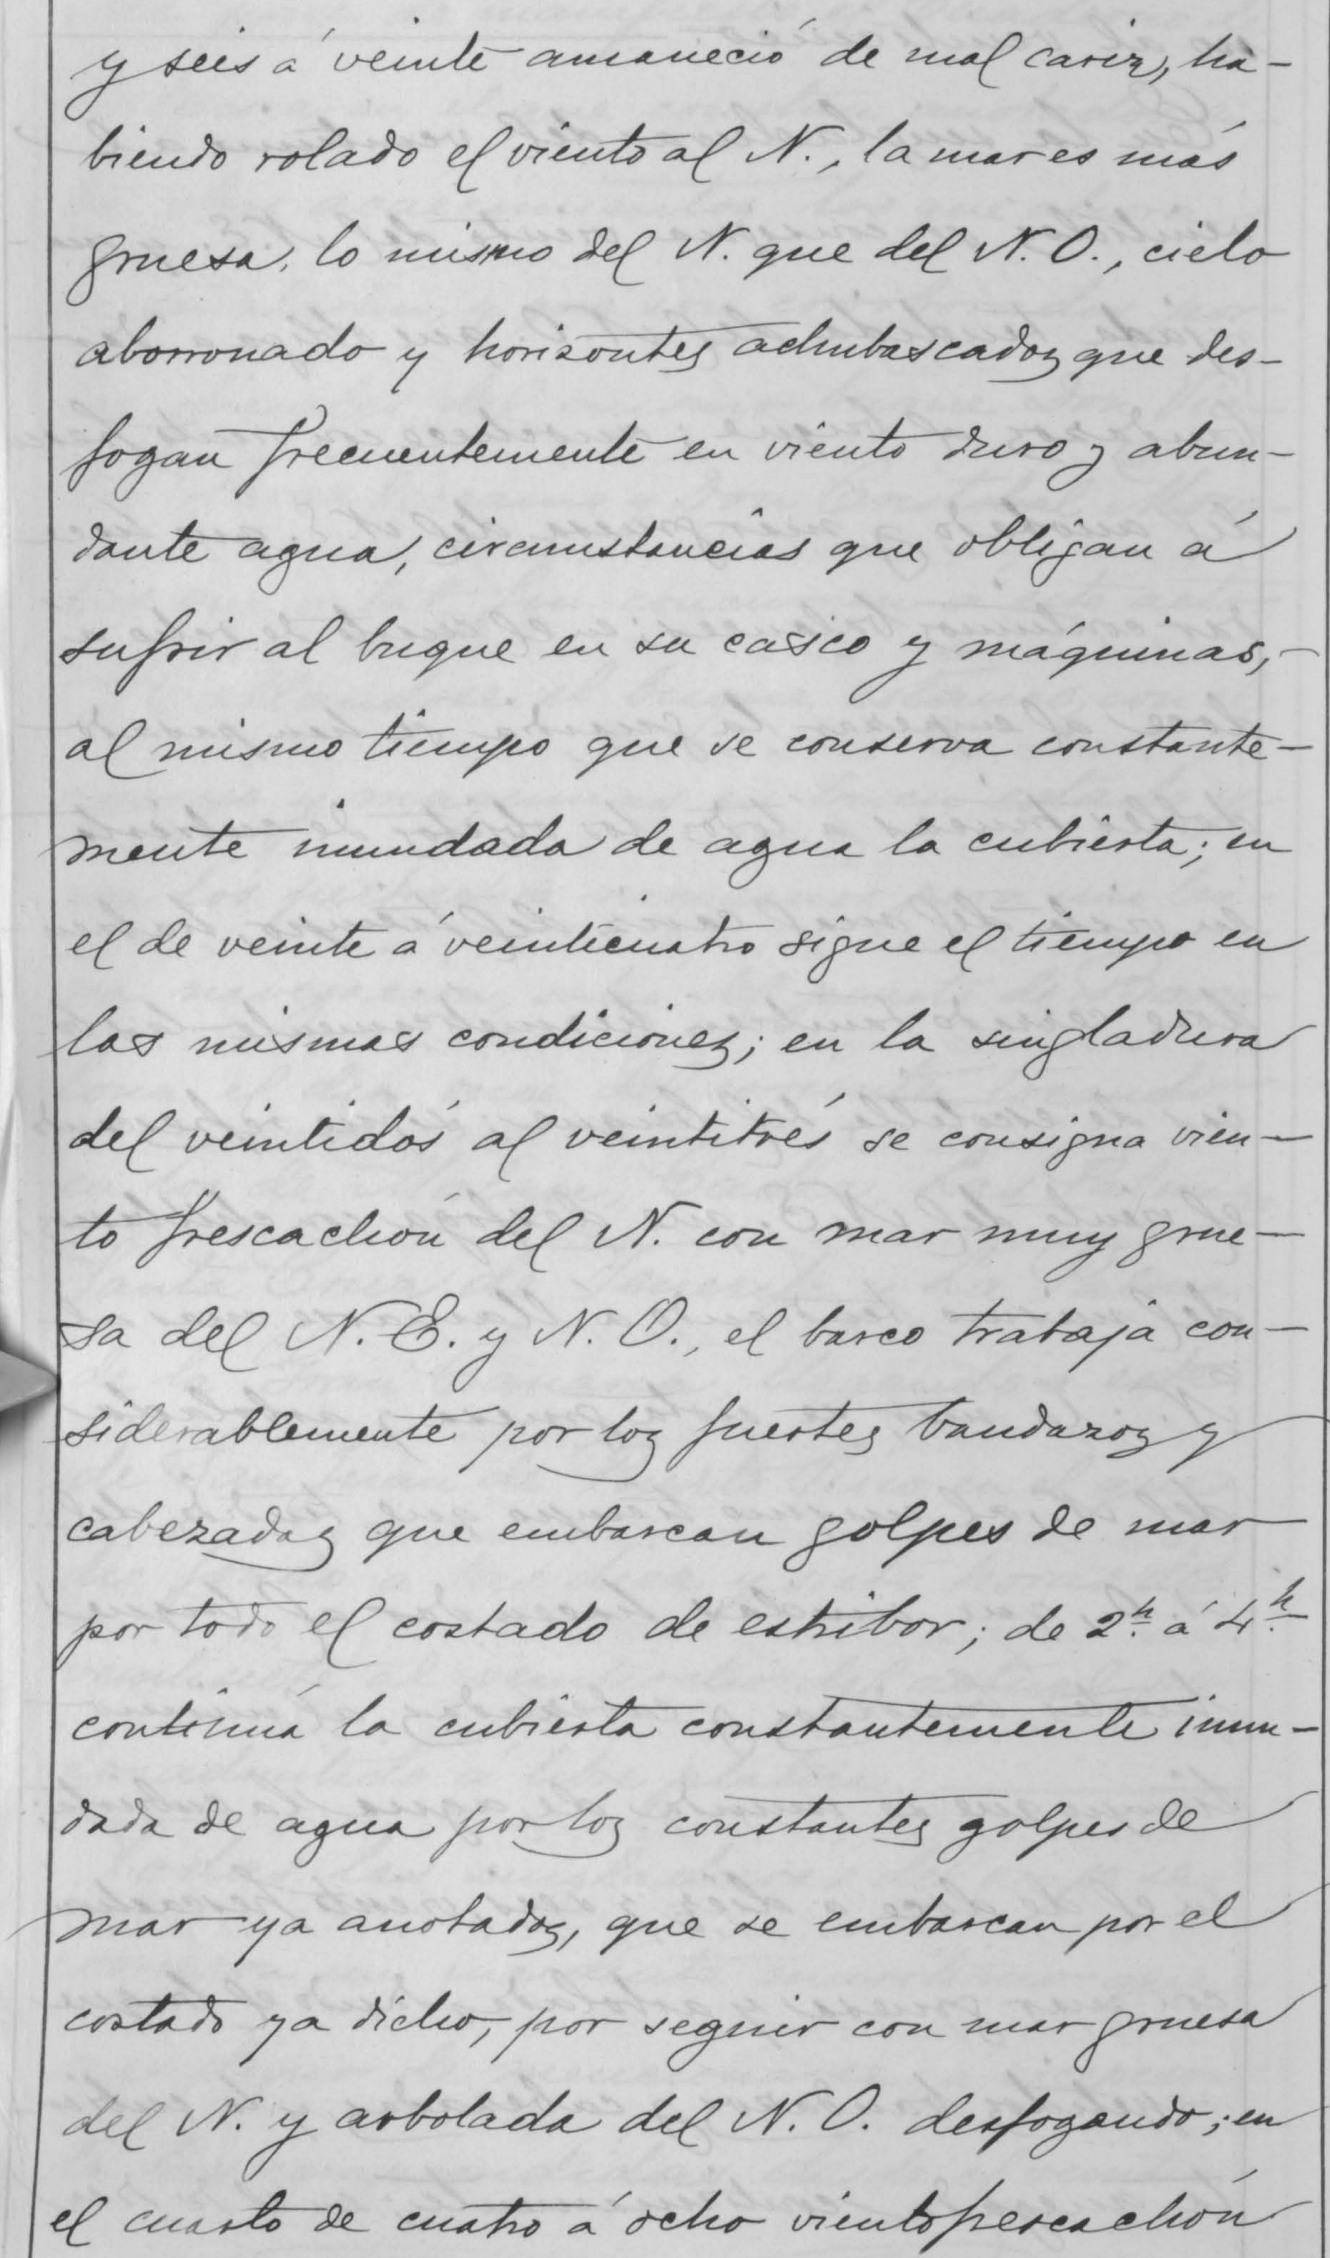 y seis á veinte amaneció de mal cariz, ha-
biendo rolado el viento al N., la mar es más
gruesa, lo mismo del N. que del N. O., cielo
aborronado y horisontes achubascados que des-
fogan frecuentemente en viento duro y abun-
dante agua, circunstancias que obligan á
sufrir al buque en su casco y máquinas,-
al mismo tiempo que se conserva constante-
mente inundada de agua la cubierta; en
el de veinte á veinticuatro sigue el tiempo en
las mismas condiciones; en la singladura
del veintidós al veintitrés se consigna vien-
to frescachón del N. con mar muy grue-
sa del N. E. y N. O., el barco trabaja con-
siderablemente por los fuertes bandazos y
cabezadas que embarcan golpes de mar
por todo el costado de estribor; de 2h. á 4h.
continúa la cubierta constantemente inun-
dada de agua por los constantes golpes de
mar ya anotados, que se embarcan por el
costado ya dicho, por seguir con mar gruesa
del N. y arbolada del N. O. desfogando; en
el cuarto de cuatro á ocho viento frescachón